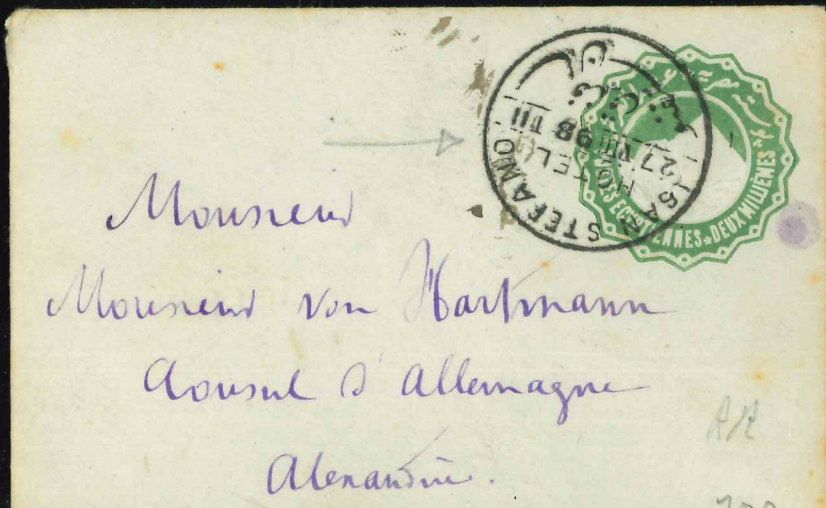 SAN STEFANO
HOTEL
27 VII 98 III
POSTES EGYPTIENNES * DEUX MILLIÈMES
Monsieur
Monsieur von Hartmann
Consul d'Allemagne
Alexandrie.